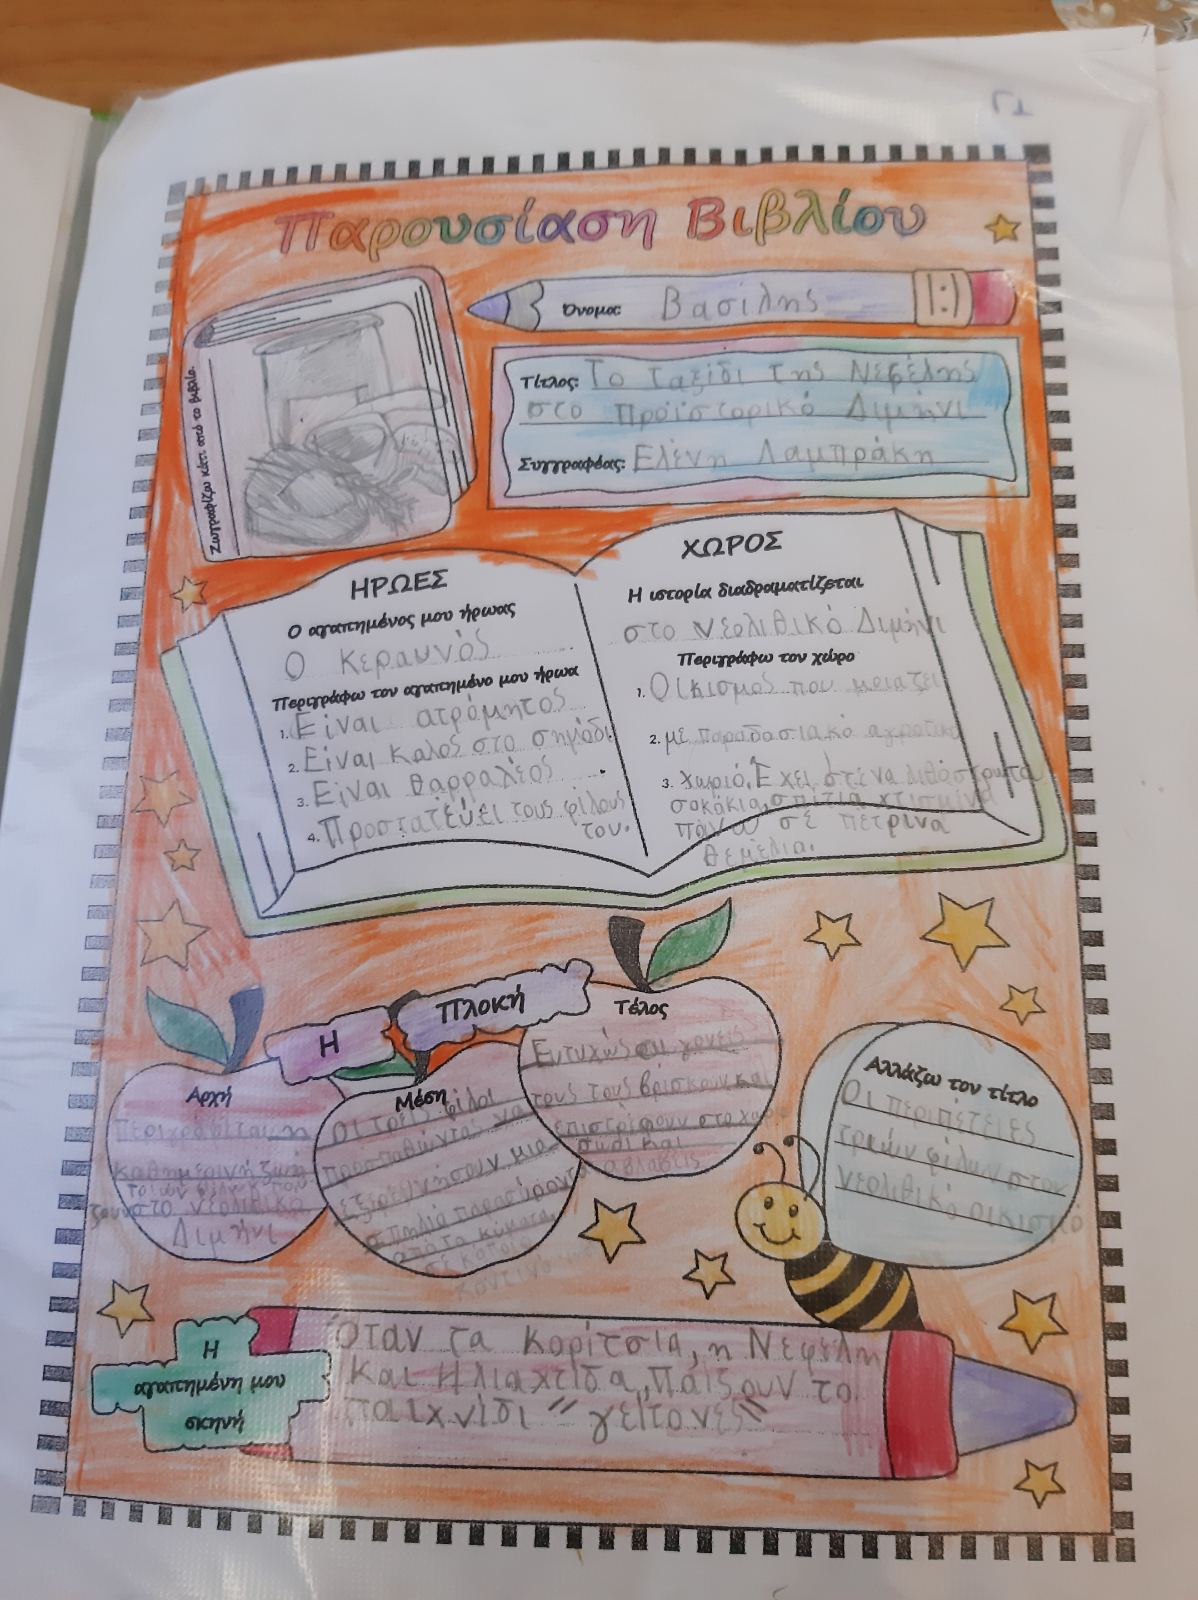 Παρουσίαση Βιβλίου
Όνομα: Βασίλης
Ζωγραφίζω κάτι από το βιβλίο.
Τίτλος: Το ταξίδι της Νεφέλης
στο προϊστορικό Διμήνι
Συγγραφέας: Ελένη Λαμπράκη
ΗΡΩΕΣ
Ο αγαπημένος μου ήρωας
Ο Κεραυνός
Περιγράφω τον αγαπημένο μου ήρωα
1. Είναι ατρόμητος
2. Είναι καλός στο σημάδι
3. Είναι θαρραλέος
4. Προστατεύει τους φίλους
του.
ΧΩΡΟΣ
Η ιστορία διαδραματίζεται
στο νεολιθικό Διμήνι
Περιγράφω τον χώρο
1. Οικισμός που μοιάζει
2. με παραδοσιακό αγροτικό
3. χωριό. Έχει στενά λιθόστρωτα
σοκάκια, σπίτια χτισμένα
πάνω σε πέτρινα
θεμέλια.
Η Πλοκή
Αρχή
Περιγράφεται η
καθημερινή ζωή
τριών φίλων που
ζουν στο νεολιθικό
Διμήνι
Μέση
Οι τρεις φίλοι
προσπαθώντας να
εξερευνήσουν μια
σπηλιά παρασύρονται
από τα κύματα
σε κάποιο
Τέλος
Ευτυχώς οι γονείς
τους τους βρίσκουν και
επιστρέφουν στο χωριό
σώοι και
αβλαβείς
Αλλάζω τον τίτλο
Οι περιπέτειες
τριών φίλων στον
νεολιθικό οικισμό
Η
αγαπημένη μου
σκηνή
Όταν τα κορίτσια, η Νεφέλη
και Ηλιαχτίδα, παίζουν το
παιχνίδι "γείτονες"